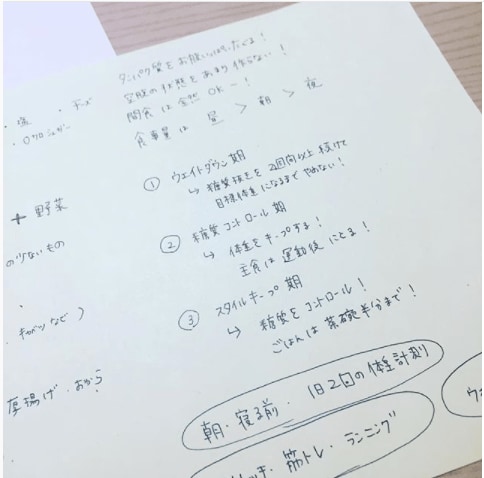 タンパク質をお腹いっぱいたべる!
空腹の状態をあまり作らない!
間食は全然OKー!
食事量は 昼 > 朝 > 夜
・塩 ・チーズ
・0クロシュガー
① ウェイトダウン期
↳ 糖質抜きを2週間以上続けて
目標体重になるまでやめない!
+ 野菜
の少ないもの
② 糖質コントロール期
↳ 体重をキープする!
主食は運動後にとる!
・キャベツなど)
③ スタイルキープ期
↳ 糖質をコントロール!
ごはんは茶碗半分まで!
厚揚げ・おから
朝・寝る前・1日2回の体重計測り
ッチ・筋トレ・ランニング
ウ